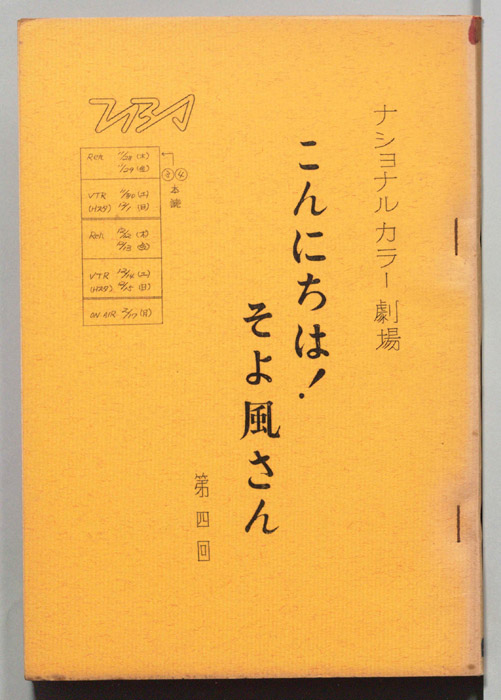 ナショナルカラー劇場
こんにちは!
そよ風さん
第四回
TBS
③④
本読
Reh. 11/28 (木)
11/29 (金)
VTR 11/30 (土)
(Hスタ) 12/1 (日)
Reh. 12/12 (木)
12/13 (金)
VTR 12/14 (土)
(Hスタ) 12/15 (日)
ON AIR 2/17 (月)